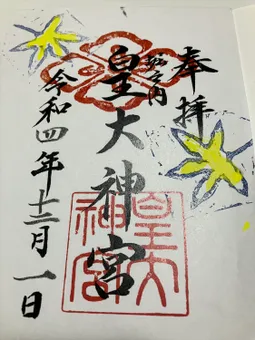 奉拝
皇大神宮
令和四年十二月一日
皇大
神宮